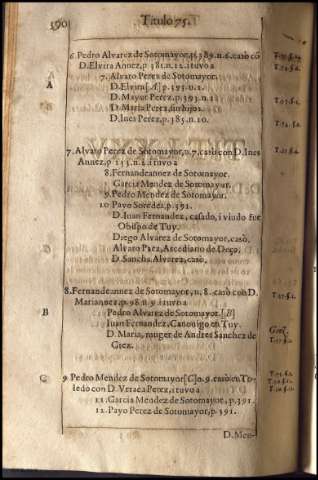 390 Titulo 75.
6 Pedro Alvarez de Sotomayor, p. 389. n. 6. casò cõ
D. Elvira Annez, p. 381. n. 12. i tuvo a
7. Alvaro Perez de Sotomayor.
A
D. Elvira [A] p. 395. n. 1.
D. Mayor Perez, p. 393. n. 12
D. Maria Perez, sin hijos.
D. Ines Perez, p. 385. n. 10.
7. Alvaro Perez de Sotomayor, n. 7. casò con D. Ines
Annez, p. i tuvo a
8. Fernandeannez de Sotomayor.
Garcia Mendez de Sotomayor.
9. Pedro Mendez de Sotomayor.
10 Payo Soredea, p. 391.
D. Juan Fernandez, casado, i viudo fue
Obispo de Tuy.
Diego Alvarez de Sotomayor, casò.
Alvaro Paez, Arcediano de Deça,
D. Sancha Alvarez, casò.
8. Fernandeannez de Sotomayor, n. 8. casò con D.
Mariannez, p. 98. n. 9. i tuvo a
B
Pedro Alvarez de Sotomayor. [B]
Juan Fernandez, Canonigo en Tuy.
D. Maria, muger de Andres Sanchez de
Grez.
C
9 Pedro Mendez de Sotomayor [C] n. 9. casò en To-
ledo con D. Perez, i tuvo a
11. Garcia Mendez de Sotomayor, p. 391.
12. Payo Perez de Sotomayor, p. 391.
D. Men-